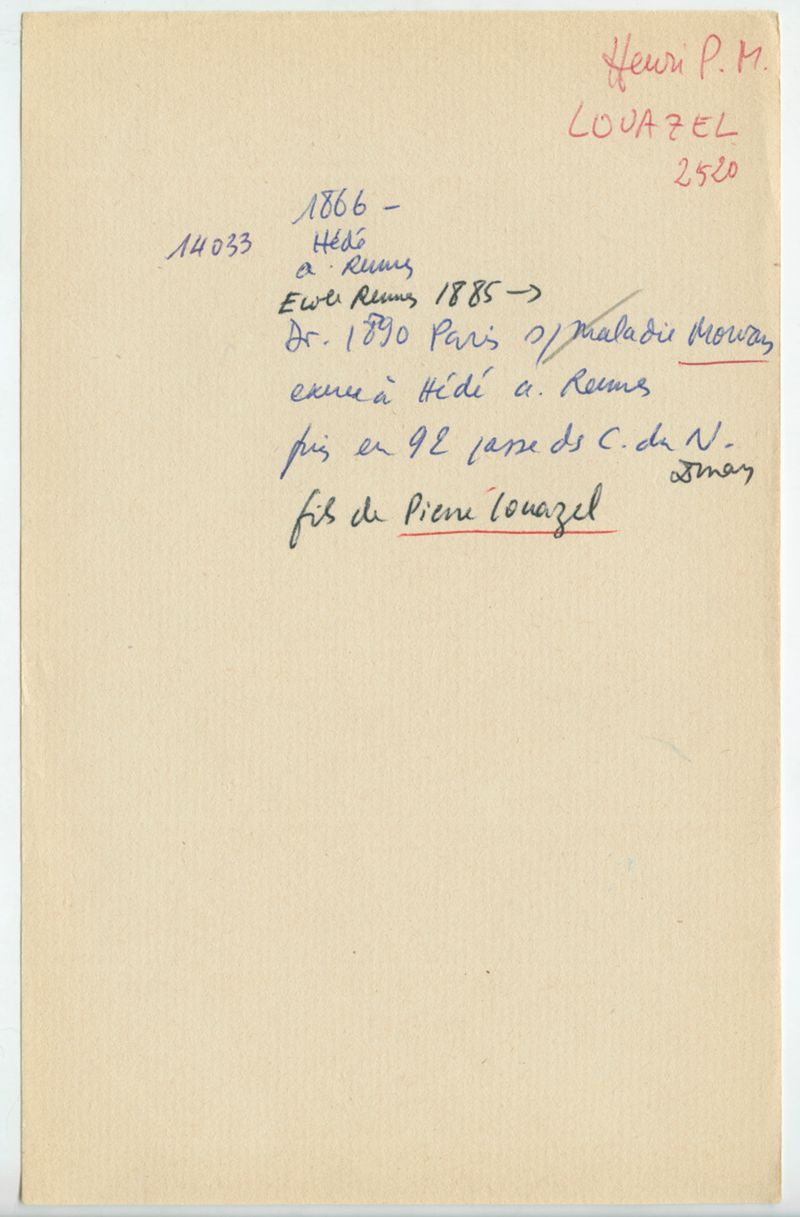 Henri P. M.
LOUAZEL
2520
1866 -
14033 Hédé
a. Rennes
Ecole Rennes 1885 →
Dr. 1890 Paris s/ maladie Morvan
exerce à Hédé a. Rennes
puis en 92 passe ds C. du N.
Dinan
fils de Pierre Louazel